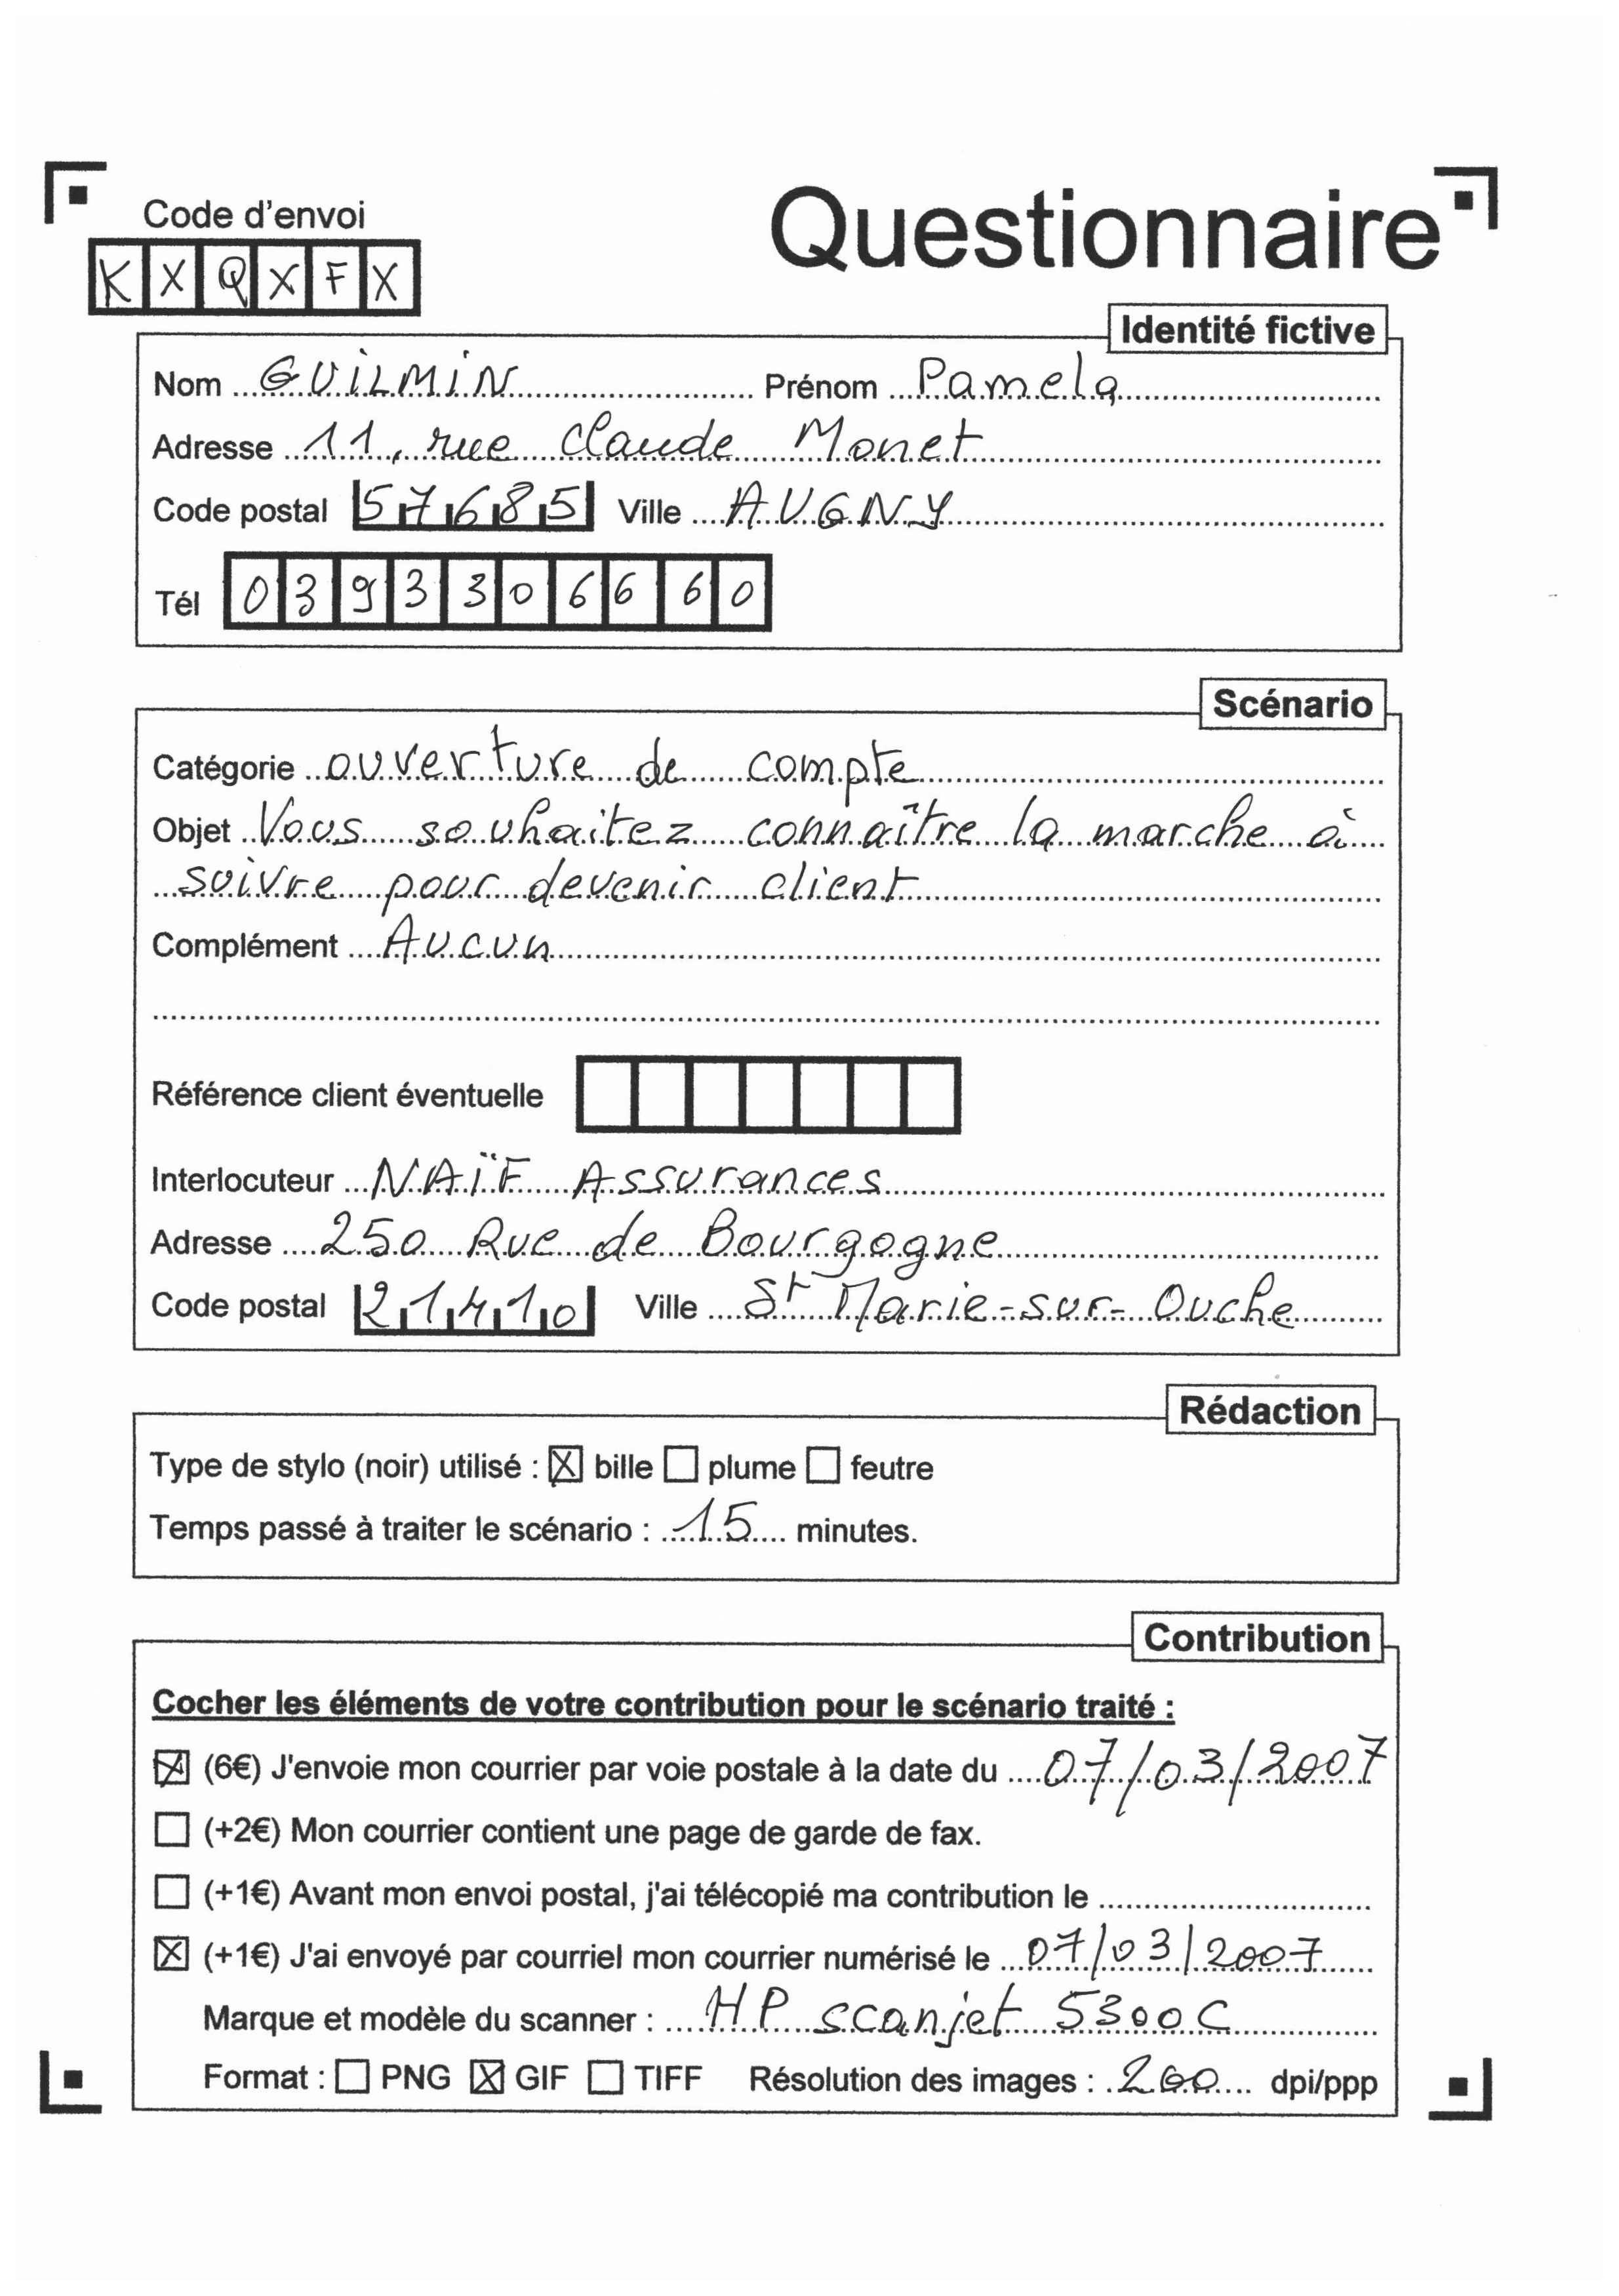 Code d'envoi
Questionnaire
KXQXFX
Identité fictive
Nom GUILMIN Prénom Pamela
Adresse 11, rue Claude Monet
Code postal 57685 Ville AUGNY
Tél 0393306660
Scénario
Catégorie ouverture de compte
Objet Vous souhaitez connaître la marche à
suivre pour devenir client
Complément Aucun
Référence client éventuelle
Interlocuteur NAÏF Assurances
Adresse 250 Rue de Bourgogne
Code postal 21410 Ville St Marie-sur-Ouche
Rédaction
Type de stylo (noir) utilisé : ☒ bille ☐ plume ☐ feutre
Temps passé à traiter le scénario : 15 minutes.
Contribution
Cocher les éléments de votre contribution pour le scénario traité :
☒ (6€) J'envoie mon courrier par voie postale à la date du 07/03/2007
☐ (+2€) Mon courrier contient une page de garde de fax.
☐ (+1€) Avant mon envoi postal, j'ai télécopié ma contribution le
☒ (+1€) J'ai envoyé par courriel mon courrier numérisé le 07/03/2007
Marque et modèle du scanner : HP scanjet 5300C
Format : ☐ PNG ☒ GIF ☐ TIFF Résolution des images : 200 dpi/ppp